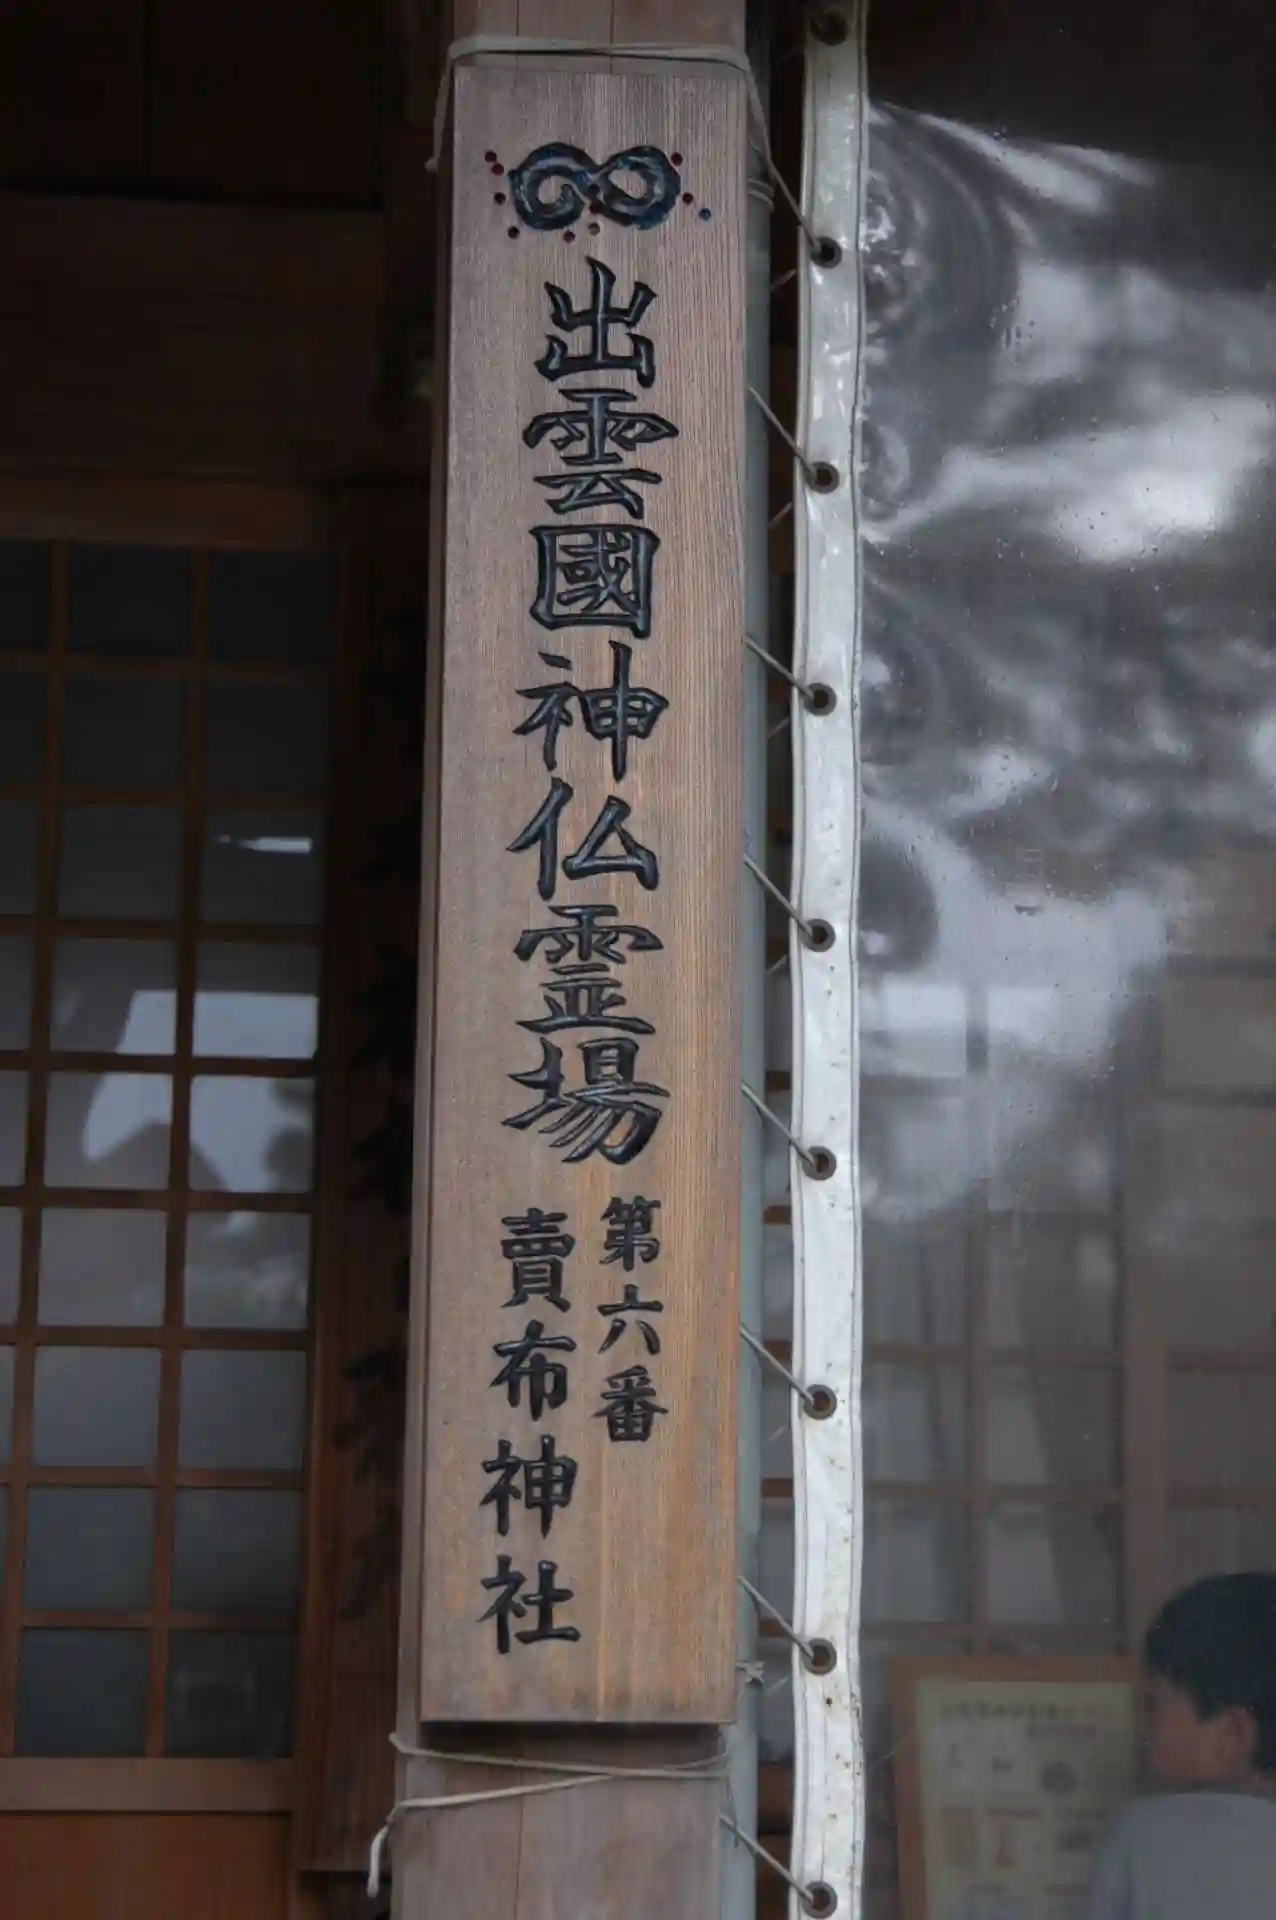 出雲國神仏霊場
第六番
賣布神社